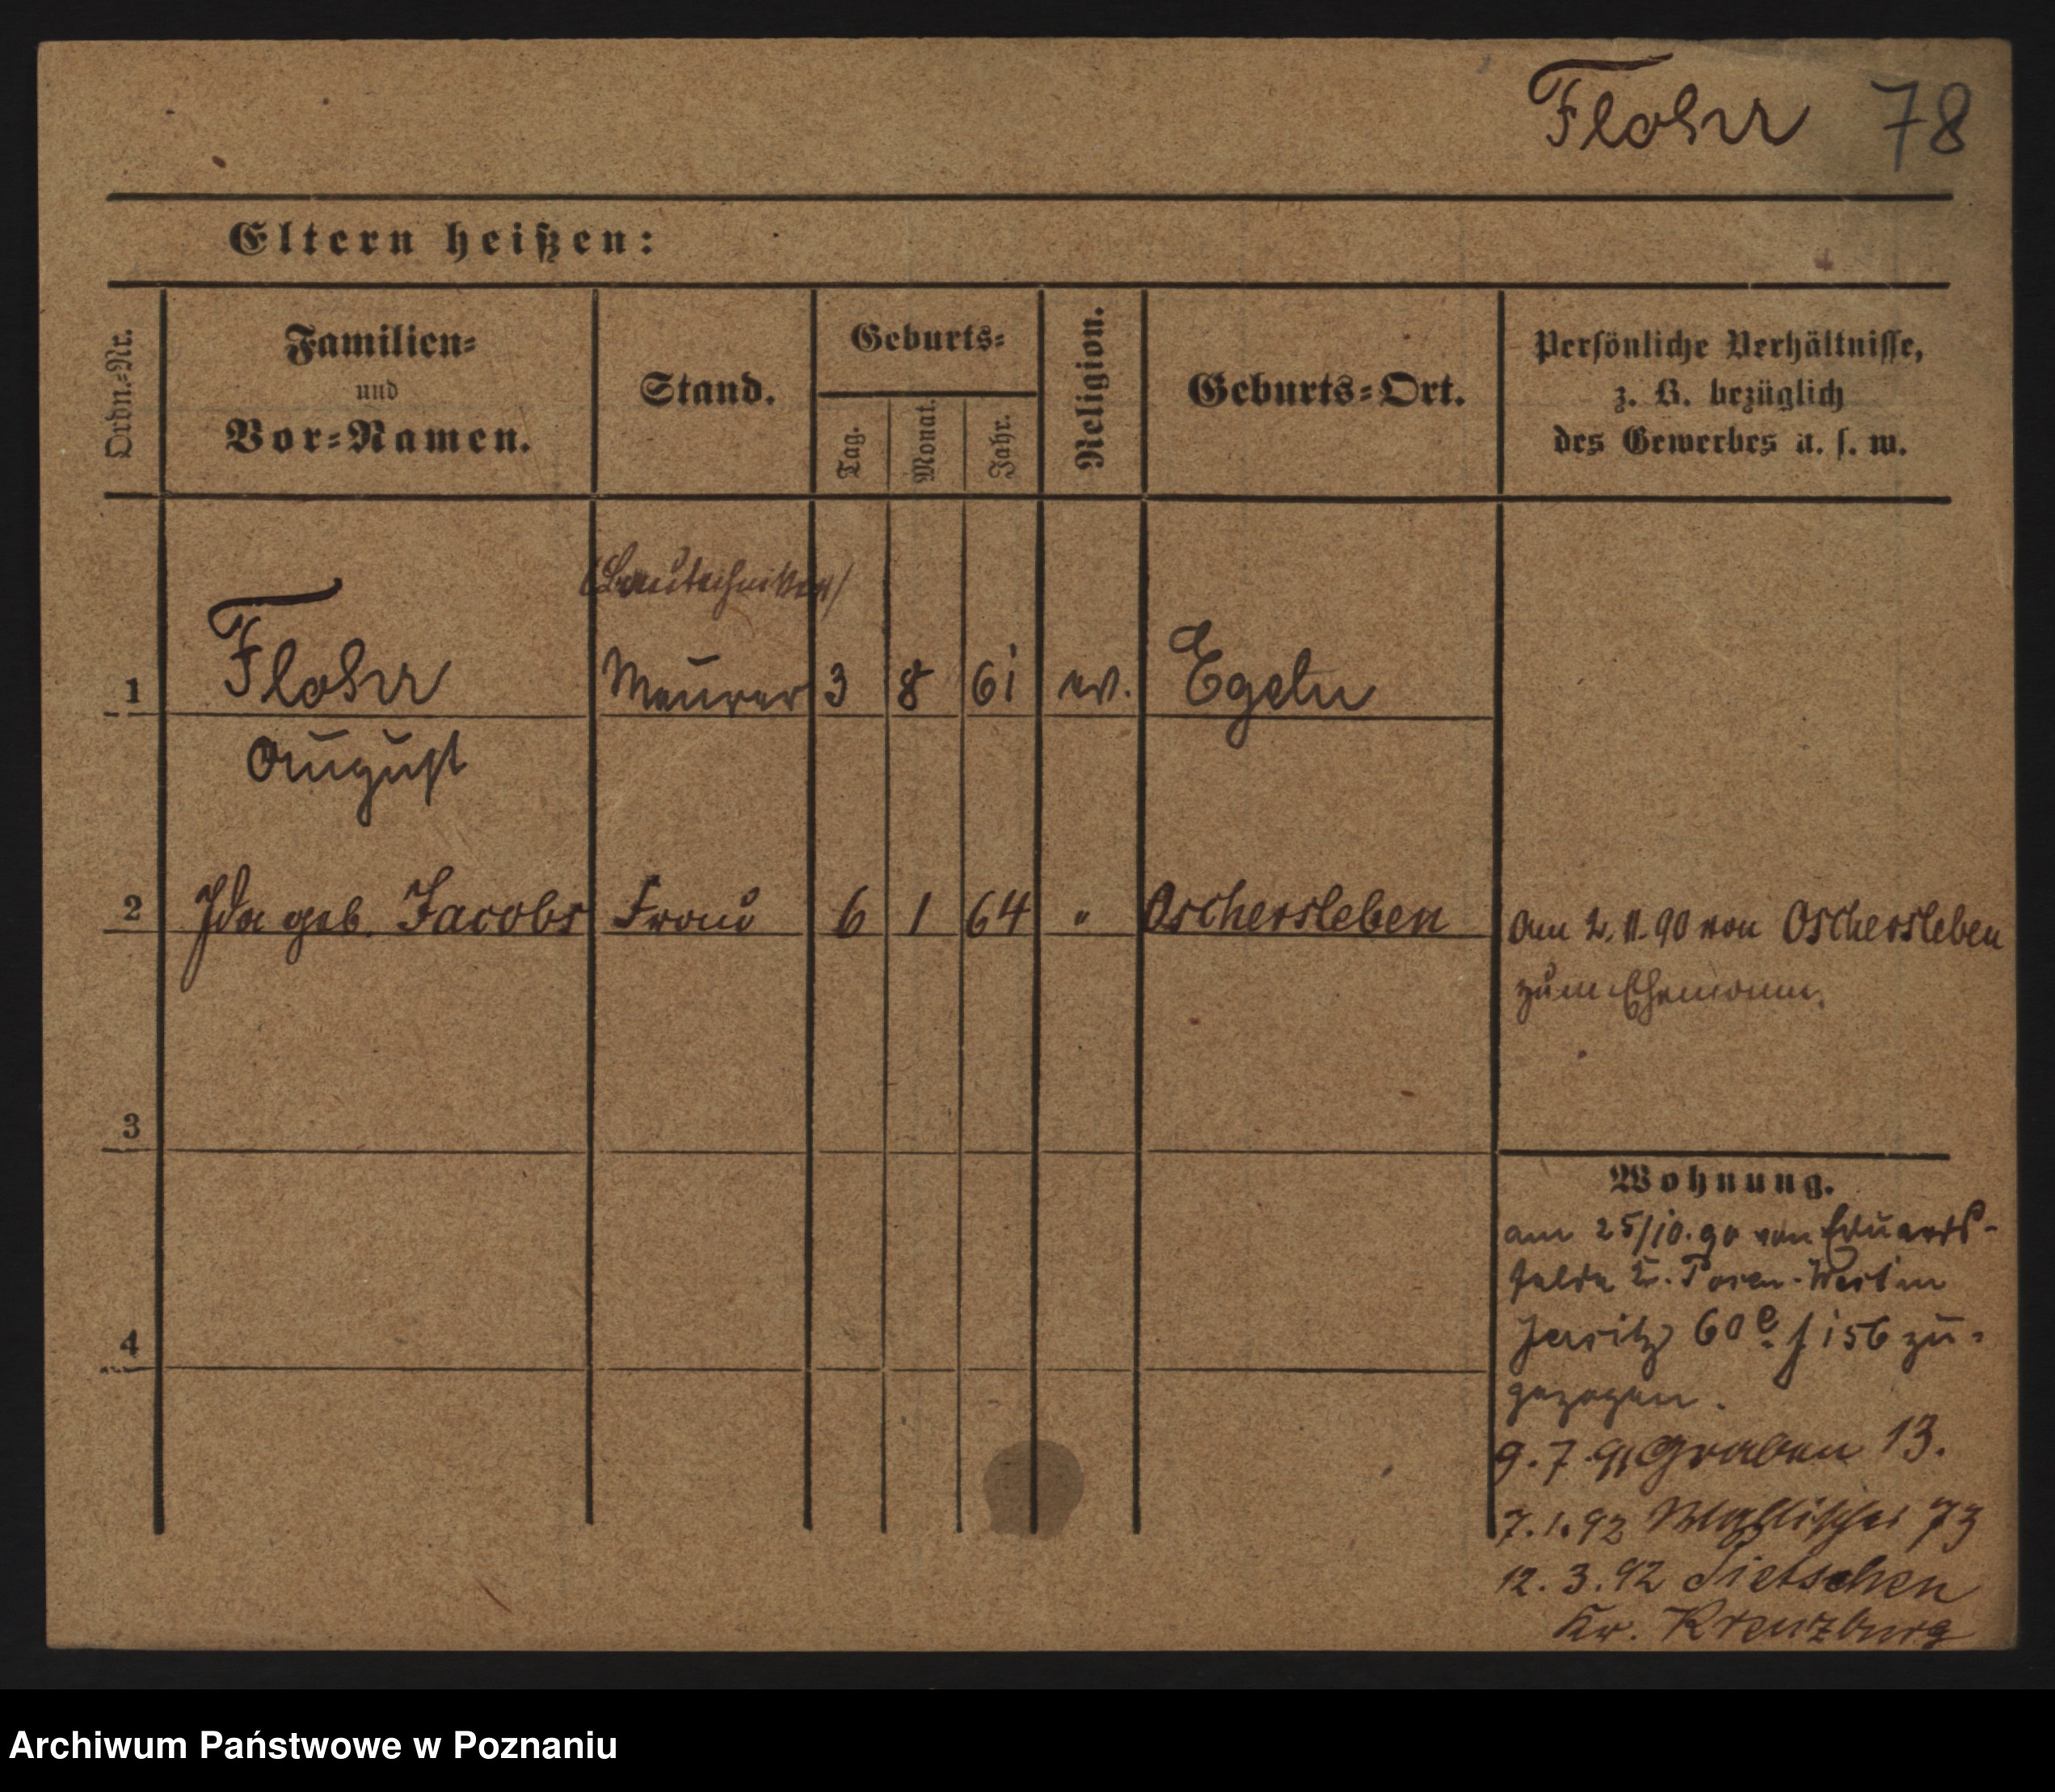 Flohr 78
Eltern heißen:
Ordn.-Nr.
Familien- und Vor-Namen.
Stand.
Geburts-
Tag.
Monat.
Jahr.
Religion.
Geburts-Ort.
Persönliche Verhältnisse,
z. B. bezüglich
des Gewerbes u. s. w.
(Bautechniker)
1 Flohr Maurer 3 8 61 ev. Egeln
August
2 Ida geb. Jacobs Frau 6 1 64 " Oschersleben
am 2. 11. 90 von Oschersleben
zum Ehemann.
3
4
Wohnung.
am 25/10. 90 von Eduards-
felde Kr. Posen-West in
Jersitz 60 e f 156 zu-
gezogen.
9. 7. 91 Graben 13.
7. 1. 92 Wallischei 73
12. 3. 92
Kr. Kreuzburg
Archiwum Państwowe w Poznaniu